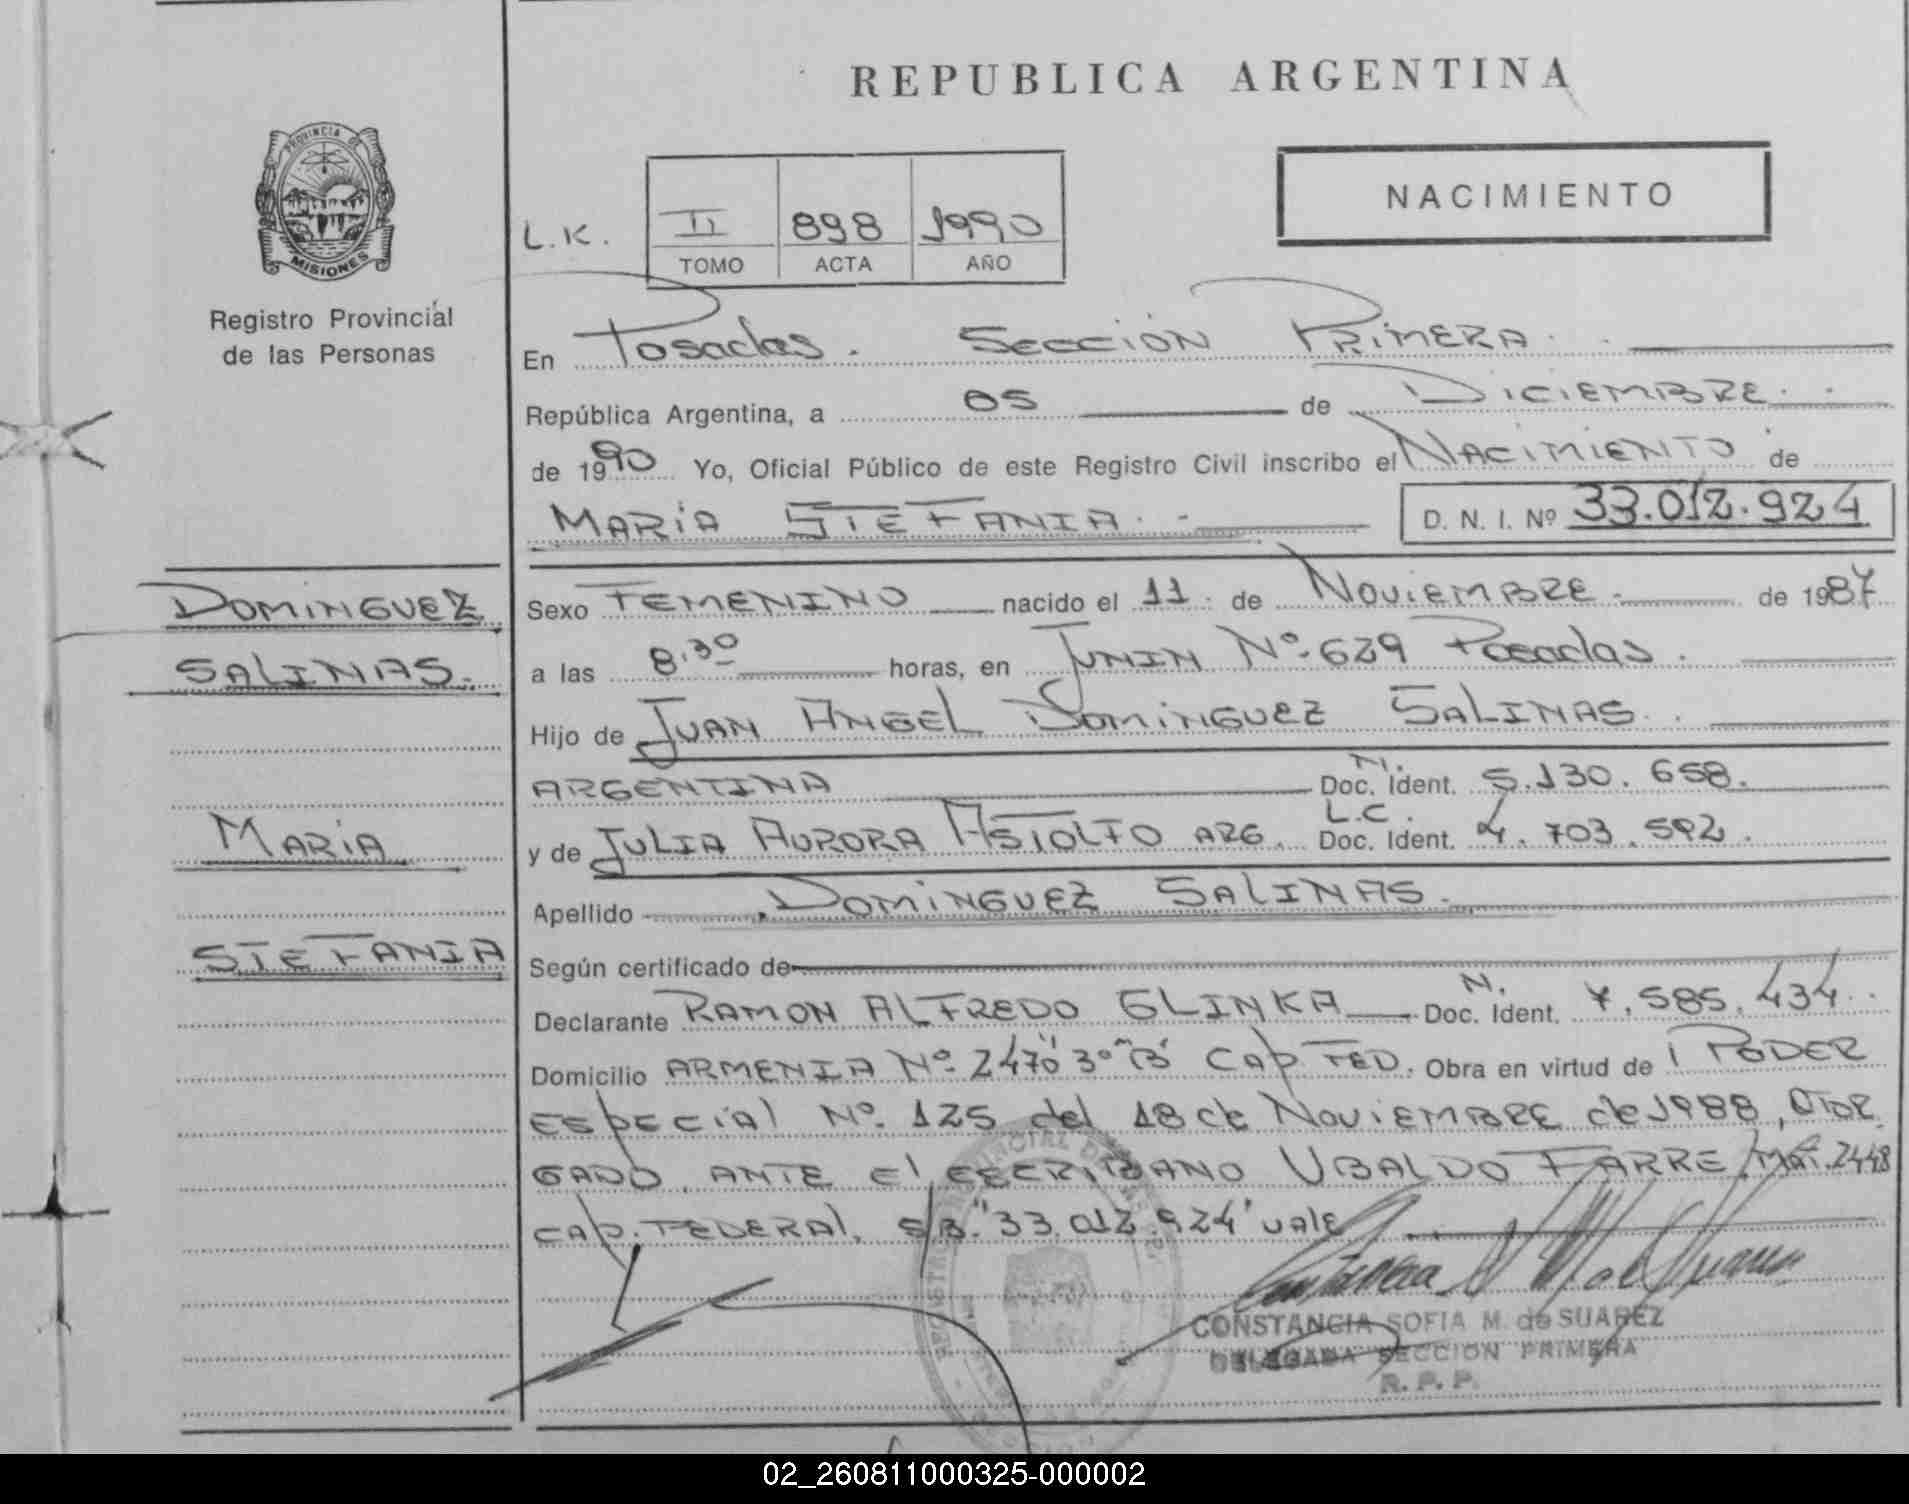 REPUBLICA ARGENTINA
NACIMIENTO
PROVINCIA DE
MISIONES
Registro Provincial
de las Personas
L.K.
II 898 1990
TOMO ACTA AÑO
En Posadas. SECCIÓN PRIMERA.
República Argentina, a 05 de DICIEMBRE.
de 1990 Yo, Oficial Público de este Registro Civil inscribo el NACIMIENTO de
MARIA STEFANIA. D. N. I. Nº 33.012.924
DOMINGUEZ
SALINAS.
MARIA
STEFANIA
Sexo FEMENINO nacido el 11. de NOVIEMBRE. de 1987
a las 8.30 horas, en JUNIN Nº. 629 Posadas.
Hijo de JUAN ANGEL DOMINGUEZ SALINAS.
ARGENTINA M. Doc. Ident. 5.130.658.
y de JULIA AURORA ASTOLFO ARG. L.C. Doc. Ident. 4.703.592.
Apellido DOMINGUEZ SALINAS.
Según certificado de
Declarante RAMON ALFREDO GLINKA Doc. Ident. 7.585.434.
Domicilio ARMENIA Nº 2470 3º "B" CAP. FED. Obra en virtud de 1 PODER
ESPECIAL Nº. 125 del 18 de NOVIEMBRE de 1988, OTOR
GADO ANTE El ESCRIBANO UBALDO FARRE, MAT. 2448
CAP. FEDERAL. S/B. "33.012.924" vale
CONSTANCIA SOFIA M. de SUAREZ
DELEGADA SECCION PRIMERA
R. P. P.
02_260811000325-000002